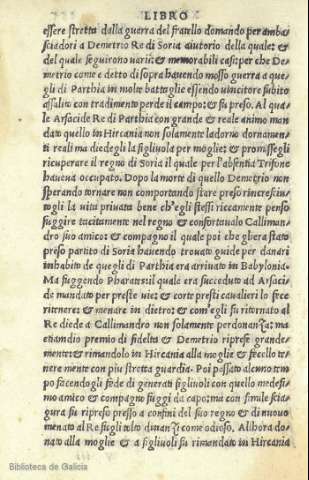 LIBRO
essere stretta dalla guerra del fratello domando per amba
sciadori a Demetrio Re di Soria aiutorio della quale: &
del quale seguirono varii: & memorabili casi: per che De
metrio come e detto di sopra havendo mosso guerra a que
gli di Parthia in molte battaglie essendo vincitore subito
assalito con tradimento perde il campo: & su preso. Al qua
le Arsacide Re di Parthia con grande & reale animo man
dato quello in Hircania non solamente ladorno dornamen
ti reali ma diedegli la figliuola per moglie: & promissegli
ricuperare il regno di Soria il quale per l'absentia Trifone
haveva occupato. Dopo la morte di quello Demetrio non
sperando tornare non comportando stare preso rincrescien
togli la vita privata bene ch'egli stessi riccamente penso
fuggire tacitamente nel regno & confortavalo Callimman
dro suo amico: & compagno il quale poi che gliera stato
preso partito di Soria havendo trovato guide per danari
in habito de quegli di Parthia era arrivato in Babylonia.
Ma fuggendo Pharate: il quale era succeduto ad Arsaci
de mandato per preste vie: & corte presti cavalieri lo fece
ritnere: & menare in dietro: & com'egli fu ritornato al
Re diede a Callimandro non solamente perdonanza: ma
etiamdio premio di fidelta & Demetrio riprese grande
mente: & rimandolo in Hircania alla moglie & fecello te
nere mente con piu stretta guardia. Poi passato alcuno tem
po facendogli fede di generati figliuoli con quello medesi
mo amico & compagno fuggi da capo: ma con simile scia
gura fu ripreso presso a confini del suo regno & di nuovo
menato al Re fugli tolto dinanzi come odioso. Allhora do
nato alla moglie & a figliuoli fu rimandato in Hircania
Biblioteca de Galicia